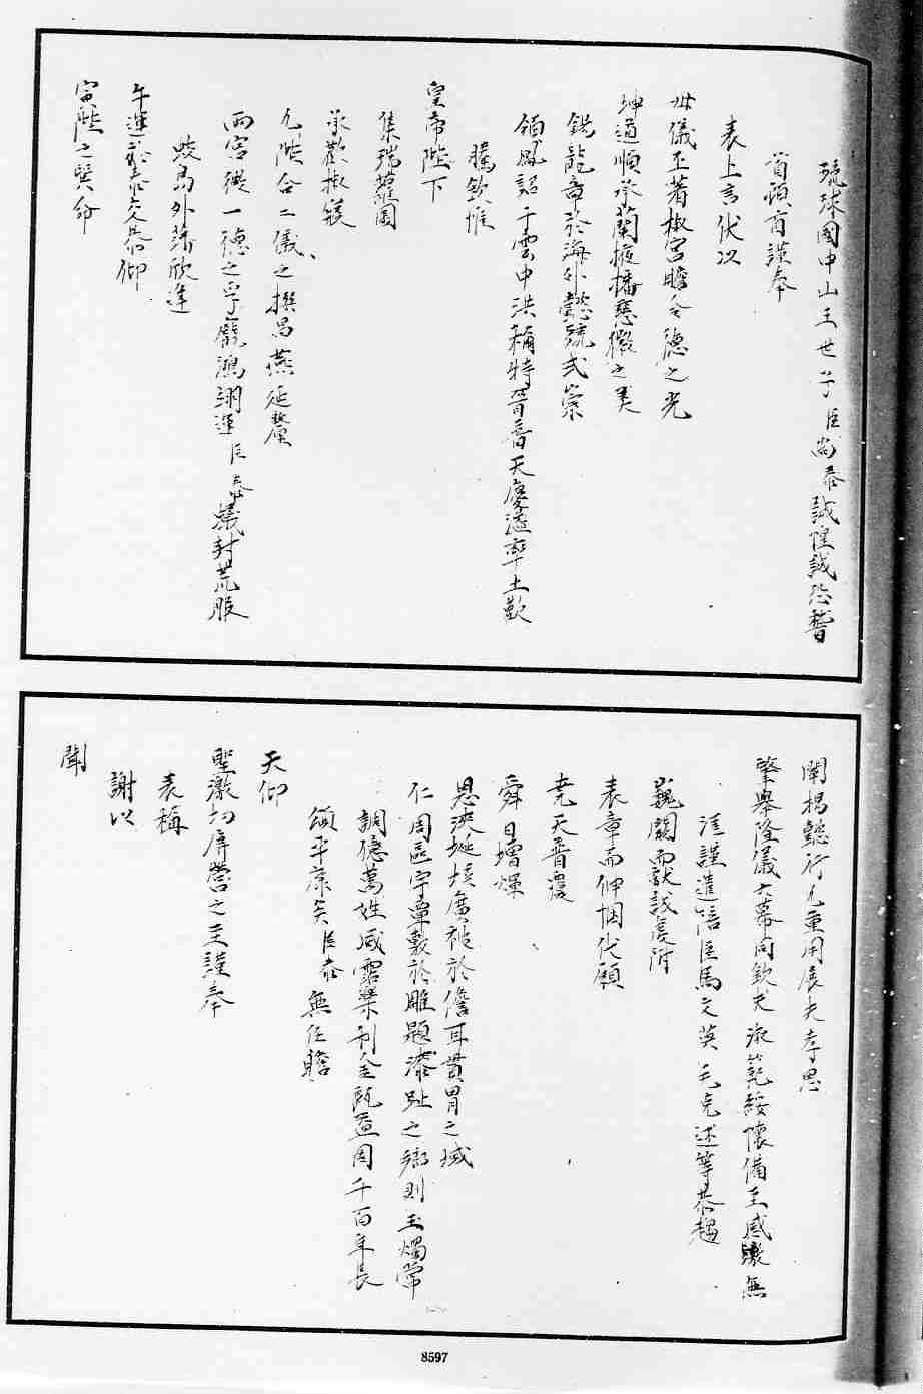 琉球國中山王世子臣尚泰誠惶誠恐稽
首頓首謹奉
表上言伏以
母儀丕著椒宮瞻令德之光
坤道順承蘭掖播慈徽之美
錫龍章於海外懿號式崇
頒鳳詔于雲中洪稱特晉普天慶溢率土歡
騰欽惟
皇帝陛下
集瑞蘿圖
承歡椒寢
九陛合二儀之撰昌燕延釐
兩宮徽一德之孚龐鴻翊運臣泰蟻封荒服
蛟島外藩欣逢
午運交泰仰
當陛之奠
闈揭懿行九重用展夫孝思
肇舉隆儀六幕同欽夫淑範綏懷備至感激無
涯謹遣陪臣馬文英毛克述等恭趨
巍闕而獻誠虔附
表章而伸悃代願
堯天普覆
舜日增輝
恩浹埏垓廣被於儋耳貫胃之域
仁周區宇覃敷於雕題漆趾之鄉則玉燭常
調億萬姓咸霑樂利金甌益固千百年長
頌平康矣臣泰無任瞻
天仰
聖激切屏營之至謹奉
表稱
謝以
聞
8597